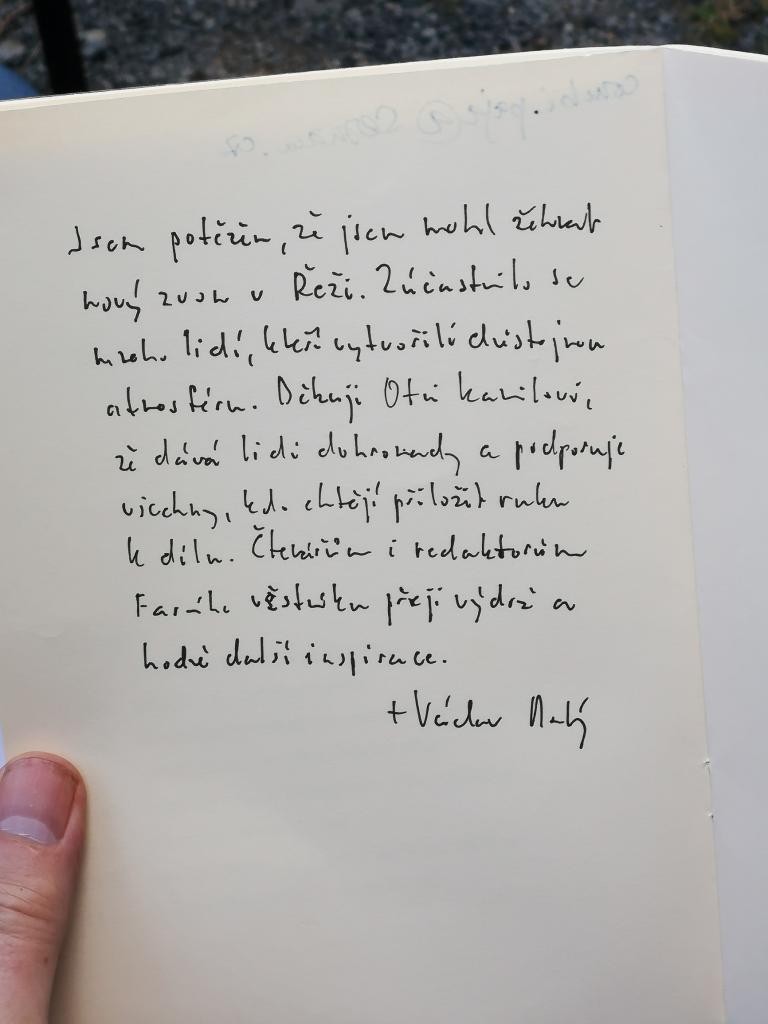 Jsem potěšen, že jsem mohl žehnat
nový zvon v Řeži. Zúčastnilo se
mnoho lidí, kteří vytvořili důstojnou
atmosféru. Děkuji Otci Kamilovi,
že dává lidi dohromady a podporuje
všechny, kdo chtějí přiložit ruku
k dílu. Čtenářům i redaktorům
Farního věstníku přeji výdrž a
hodně další inspirace.
+ Václav Malý